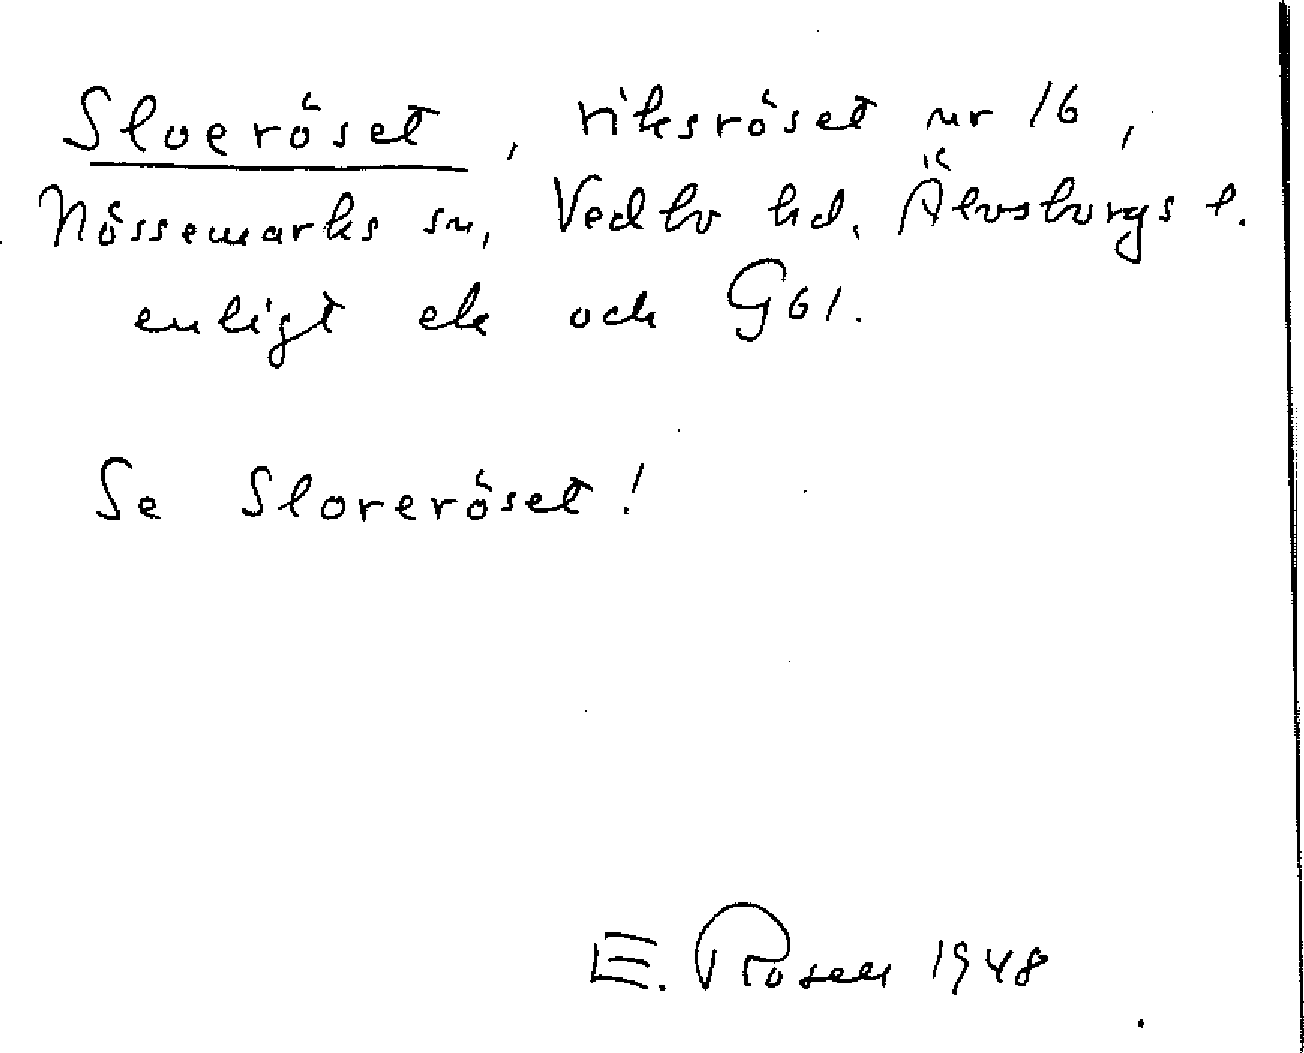 Sloeröset, riksröset nr 16,
Nössemarks sn, Vedbo hd. Älvsborgs l.
enligt ek och G61.
Se Sloreröset!
E. Rosell 1948